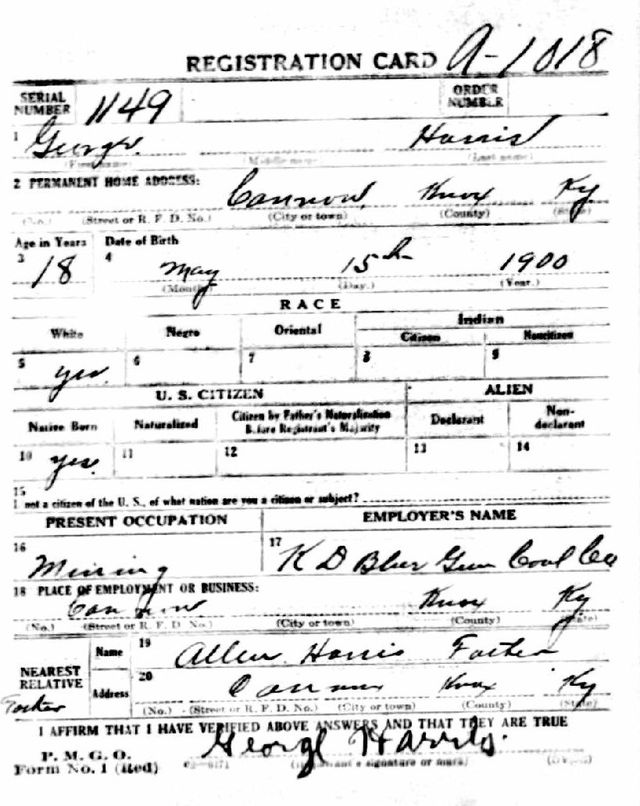 REGISTRATION CARD A-1018
SERIAL NUMBER 1149 ORDER NUMBER
1 George Harris
(First name) (Middle name) (Last name)
2 PERMANENT HOME ADDRESS: Cannon Knox Ky
(No.) (Street or R. F. D. No.) (City or town) (County) (State)
Age in Years Date of Birth
3 18 4 May 15th 1900
(Month) (Day.) (Year.)
RACE
White Negro Oriental Indian
Citizen Noncitizen
5 yes 6 7 8 9
U. S. CITIZEN ALIEN
Native Born Naturalized Citizen by Father's Naturalization Before Registrant's Majority Declarant Non-declarant
10 yes. 11 12 13 14
15
I not a citizen of the U. S., of what nation are you a citizen or subject?
PRESENT OCCUPATION EMPLOYER'S NAME
16 Mining 17 K D Blue Gem Coal Co
18 PLACE OF EMPLOYMENT OR BUSINESS:
Cannon Knox Ky
(No.) (Street or R. F. D. No.) (City or town) (County) (State)
NEAREST RELATIVE Name 19 Allen Harris Father
Address 20 Cannon Knox Ky
Father (No.) (Street or R. F. D. No.) (City or town) (County) (State)
I AFFIRM THAT I HAVE VERIFIED ABOVE ANSWERS AND THAT THEY ARE TRUE
P. M. G. O.
Form No. 1 (Red) George Harris.
(Registrant's signature or mark) (OVER)